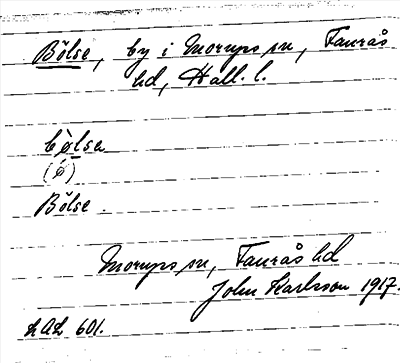 Bölse, by i Morups sn, Faurås
hd, Hall. l.
bölsa
(ó)
Bölse.
Morups sn, Faurås hd
John Karlsson 1917.
LAL 601.